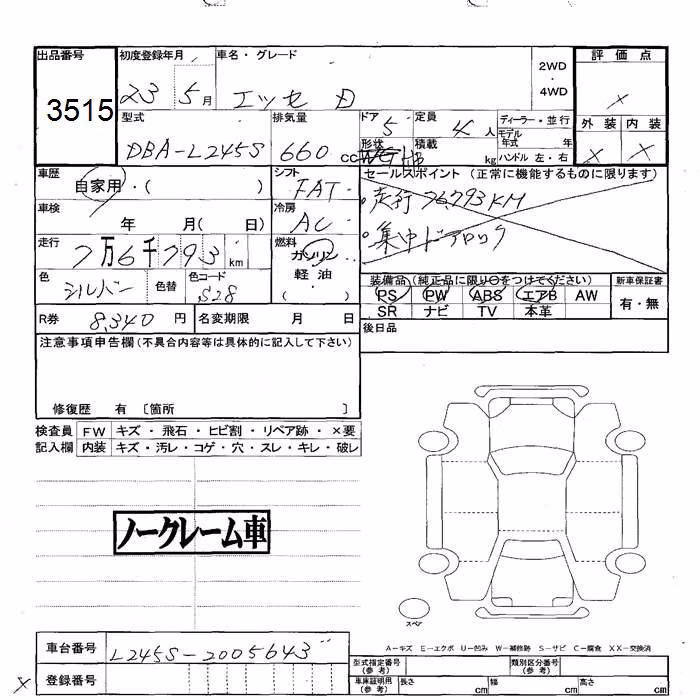 出品番号 初度登録年月 車名・グレード 2WD・4WD 評価点
3515 23 5月 エッセ D ×
型式 排気量 ドア 5 定員 4人 ディーラー・並行 外装 内装
DBA-L245S 660 cc 形状 HB 積載 kg モデル年式 年 ハンドル 左・右 × ×
車歴 自家用・( ) シフト FAT セールスポイント (正常に機能するものに限ります)
・走行76,793KM
車検 年 月( 日) 冷房 AC ・集中ドアロック
走行 7万6千793 km 燃料 ガソリン・軽油・( )
色 シルバー 色替 色コード S28 装備品(純正品に限り○をつけてください) 新車保証書
PS PW ABS エアB AW 有・無
SR ナビ TV 本革
R券 8,340円 名変期限 月 日 後日品
注意事項申告欄(不具合内容等は具体的に記入して下さい)
修復歴 有 〔箇所 〕
検査員 FW キズ・飛石・ヒビ割・リペア跡・×要
記入欄 内装 キズ・汚レ・コゲ・穴・スレ・キレ・破レ
ノークレーム車
スペア
A-キズ E-エクボ U-凹み W-補修跡 S-サビ C-腐食 XX-交換済
車台番号 L245S-2005643
登録番号
×
型式指定番号(参考) 類別区分番号(参考)
車庫証明用(参考) 長さ cm 幅 cm 高さ cm